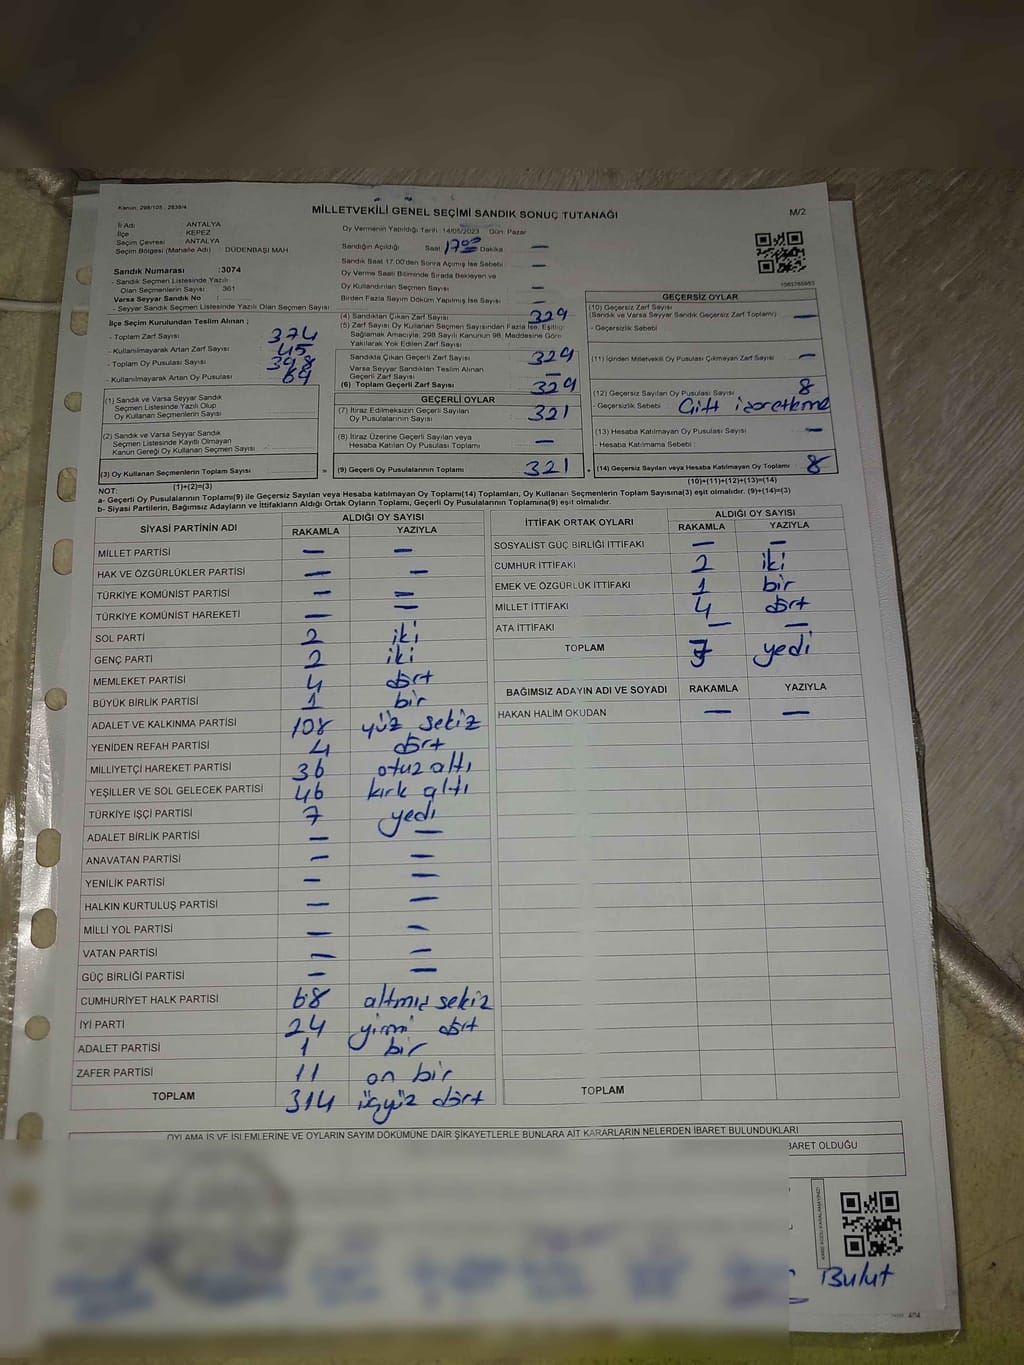 Kanun: 298/105 ; 2839/4
MİLLETVEKİLİ GENEL SEÇİMİ SANDIK SONUÇ TUTANAĞI
M/2
İl Adı : ANTALYA
İlçe : KEPEZ
Seçim Çevresi : ANTALYA
Seçim Bölgesi (Mahalle Adı) : DÜDENBAŞI MAH
Sandık Numarası :3074
- Sandık Seçmen Listesinde Yazılı
Olan Seçmenlerin Sayısı : 361
Varsa Seyyar Sandık No :
- Seyyar Sandık Seçmen Listesinde Yazılı Olan Seçmen Sayısı :
Oy Vermenin Yapıldığı Tarih : 14/05/2023 Gün: Pazar
Sandığın Açıldığı Saat 17:00 Dakika : —
Sandık Saat 17.00'den Sonra Açılmış İse Sebebi : —
Oy Verme Saati Bitiminde Sırada Bekleyen ve
Oy Kullandırılan Seçmen Sayısı : —
Birden Fazla Sayım Döküm Yapılmış İse Sayısı : —
İlçe Seçim Kurulundan Teslim Alınan ;
- Toplam Zarf Sayısı : 374
- Kullanılmayarak Artan Zarf Sayısı : 45
- Toplam Oy Pusulası Sayısı : 398
- Kullanılmayarak Artan Oy Pusulası : 69
(1) Sandık ve Varsa Seyyar Sandık
Seçmen Listesinde Yazılı Olup
Oy Kullanan Seçmenlerin Sayısı
(2) Sandık ve Varsa Seyyar Sandık
Seçmen Listesinde Kayıtlı Olmayan
Kanun Gereği Oy Kullanan Seçmen Sayısı
(3) Oy Kullanan Seçmenlerin Toplam Sayısı :
(1)+(2)=(3)
(4) Sandıktan Çıkan Zarf Sayısı : 329
(5) Zarf Sayısı Oy Kullanan Seçmen Sayısından Fazla İse, Eşitliği
Sağlamak Amacıyla; 298 Sayılı Kanunun 98. Maddesine Göre
Yakılarak Yok Edilen Zarf Sayısı :
Sandıkta Çıkan Geçerli Zarf Sayısı : 329
Varsa Seyyar Oy Sandıkları Teslim Alınan
Geçerli Zarf Sayısı : —
(6) Toplam Geçerli Zarf Sayısı : 329
GEÇERLİ OYLAR
(7) İtiraz Edilmeksizin Geçerli Sayılan
Oy Pusulalarının Sayısı : 321
(8) İtiraz Üzerine Geçerli Sayılan veya
Hesaba Katılan Oy Pusulası Toplamı : —
(9) Geçerli Oy Pusulalarının Toplamı : 321
1563766953
GEÇERSİZ OYLAR
(10) Geçersiz Zarf Sayısı
(Sandık ve Varsa Seyyar Sandık Geçersiz Zarf Toplamı) : —
- Geçersizlik Sebebi :
(11) İçinden Milletvekili Oy Pusulası Çıkmayan Zarf Sayısı : —
(12) Geçersiz Sayılan Oy Pusulası Sayısı : 8
- Geçersizlik Sebebi : Çift işaretleme
(13) Hesaba Katılmayan Oy Pusulası Sayısı : —
- Hesaba Katılmama Sebebi :
(14) Geçersiz Sayılan veya Hesaba Katılmayan Oy Toplamı : 8
(10)+(11)+(12)+(13)=(14)
NOT:
a- Geçerli Oy Pusulalarının Toplamı(9) ile Geçersiz Sayılan veya Hesaba katılmayan Oy Toplamı(14) Toplamları, Oy Kullanan Seçmenlerin Toplam Sayısına(3) eşit olmalıdır. (9)+(14)=(3)
b- Siyasi Partilerin, Bağımsız Adayların ve İttifakların Aldığı Oyların Toplamı, Geçerli Oy Pusulalarının Toplamına(9) eşit olmalıdır.
SİYASİ PARTİNİN ADI ALDIĞI OY SAYISI
RAKAMLA YAZIYLA
MİLLET PARTİSİ — —
HAK VE ÖZGÜRLÜKLER PARTİSİ — —
TÜRKİYE KOMÜNİST PARTİSİ — —
TÜRKİYE KOMÜNİST HAREKETİ — —
SOL PARTİ 2 iki
GENÇ PARTİ 2 iki
MEMLEKET PARTİSİ 4 dört
BÜYÜK BİRLİK PARTİSİ 1 bir
ADALET VE KALKINMA PARTİSİ 108 yüz sekiz
YENİDEN REFAH PARTİSİ 4 dört
MİLLİYETÇİ HAREKET PARTİSİ 36 otuz altı
YEŞİLLER VE SOL GELECEK PARTİSİ 46 kırk altı
TÜRKİYE İŞÇİ PARTİSİ 7 yedi
ADALET BİRLİK PARTİSİ — —
ANAVATAN PARTİSİ — —
YENİLİK PARTİSİ — —
HALKIN KURTULUŞ PARTİSİ — —
MİLLİ YOL PARTİSİ — —
VATAN PARTİSİ — —
GÜÇ BİRLİĞİ PARTİSİ — —
CUMHURİYET HALK PARTİSİ 68 altmış sekiz
İYİ PARTİ 24 yirmi dört
ADALET PARTİSİ 1 bir
ZAFER PARTİSİ 11 on bir
TOPLAM 314 üçyüz dört
İTTİFAK ORTAK OYLARI ALDIĞI OY SAYISI
RAKAMLA YAZIYLA
SOSYALİST GÜÇ BİRLİĞİ İTTİFAKI — —
CUMHUR İTTİFAKI 2 iki
EMEK VE ÖZGÜRLÜK İTTİFAKI 1 bir
MİLLET İTTİFAKI 4 dört
ATA İTTİFAKI — —
TOPLAM 7 yedi
BAĞIMSIZ ADAYIN ADI VE SOYADI RAKAMLA YAZIYLA
HAKAN HALİM OKUDAN — —
TOPLAM
OYLAMA İŞ VE İŞLEMLERİNE VE OYLARIN SAYIM DÖKÜMÜNE DAİR ŞİKAYETLERLE BUNLARA AİT KARARLARIN NELERDEN İBARET BULUNDUKLARI
BARET OLDUĞU
KARE KODU KARALAMAYINIZ!
Bulut